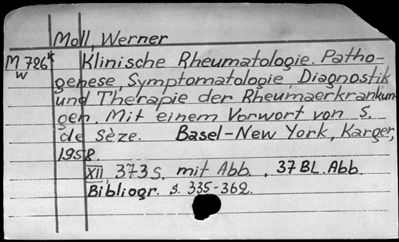 Moll, Werner
M 726k Klinische Rheumatologie. Patho-
w genese, Symptomatologie, Diagnostik
und Therapie der Rheumaerkrankun-
gen. Mit einem Vorwort von S.
de Sèze. Basel-New York, Karger,
1958.
XII, 373 S. mit Abb., 37 BL. Abb.
Bibliogr. S. 335-362.